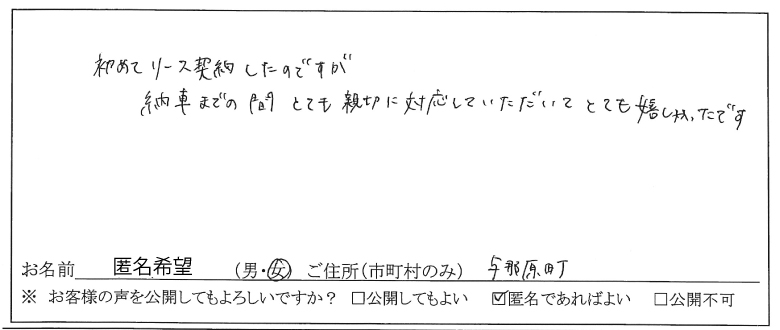 初めてリース契約したのですが
納車までの間 とても親切に対応していただいて とても嬉しかったです
お名前 匿名希望 (男・女) ご住所(市町村のみ) 与那原町
※ お客様の声を公開してもよろしいですか? □公開してもよい ☑匿名であればよい □公開不可